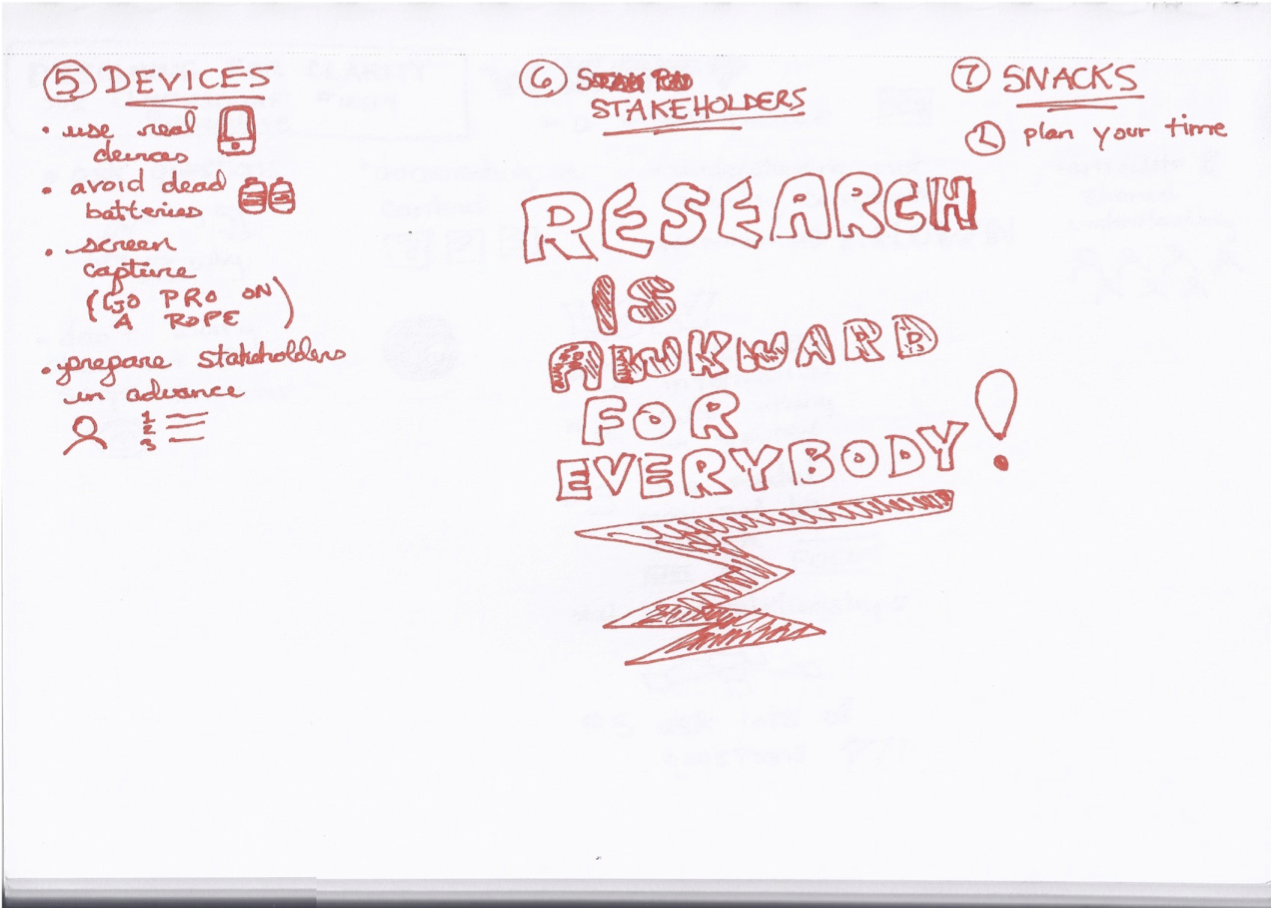 5 DEVICES
• use real
devices
• avoid dead
batteries
• screen
capture
(GO PRO ON
A ROPE)
• prepare stakeholders
in advance
1
2
3
6
STAKEHOLDERS
RESEARCH
IS
AWKWARD
FOR
EVERYBODY!
7 SNACKS
plan your time